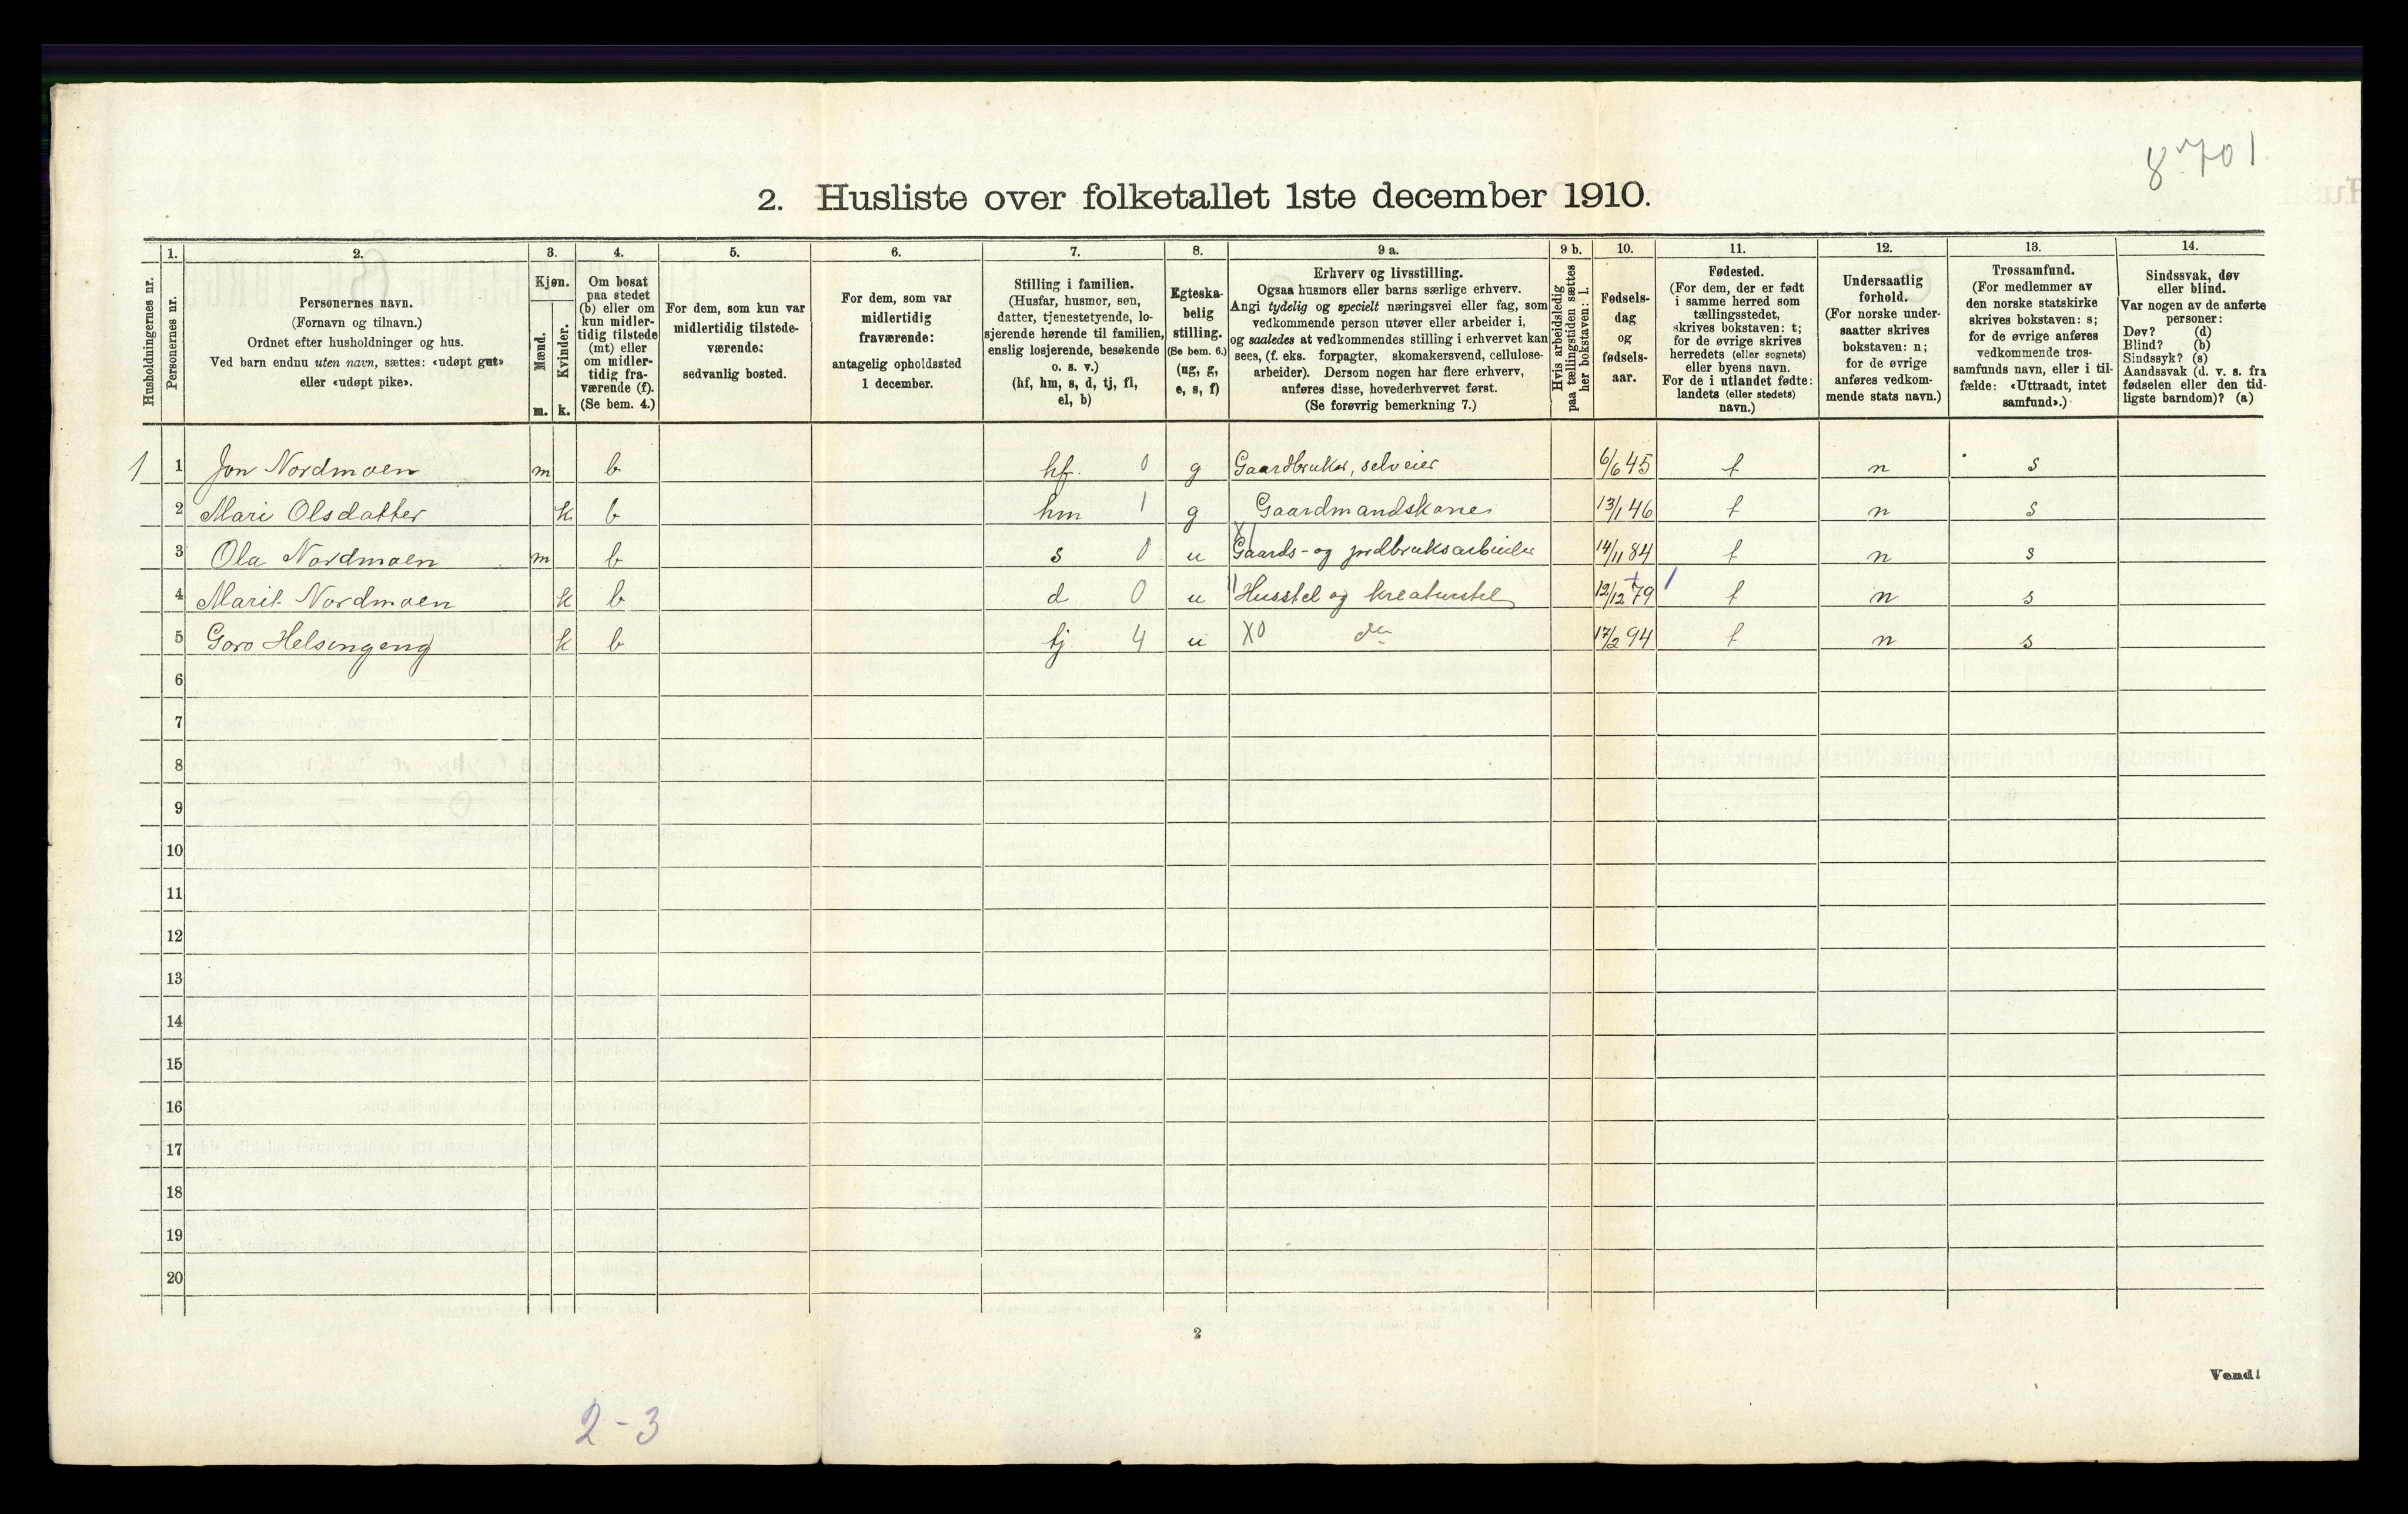 8-701
2. Husliste over folketallet 1ste december 1910.
Husholdningernes nr.
1.
Personernes nr.
2.
Personernes navn.
(Fornavn og tilnavn.)
Ordnet efter husholdninger og hus.
Ved barn endnu uten navn, sættes: «udøpt gut»
eller «udøpt pike».
3.
Kjøn.
Mænd.
Kvinder.
m. k.
4.
Om bosat
paa stedet
(b) eller om
kun midler-
tidig tilstede
(mt) eller
om midler-
tidig fra-
værende (f).
(Se bem. 4.)
5.
For dem, som kun var
midlertidig tilstede-
værende:
sedvanlig bosted.
6.
For dem, som var
midlertidig
fraværende:
antagelig opholdssted
1 december.
7.
Stilling i familien.
(Husfar, husmor, søn,
datter, tjenestetyende, lo-
sjerende hørende til familien,
enslig losjerende, besøkende
o. s. v.)
(hf, hm, s, d, tj, fl,
el, b)
8.
Egteska-
belig
stilling.
(Se bem. 6.)
(ug, g,
e, s, f)
9 a.
Erhverv og livsstilling.
Ogsaa husmors eller barns særlige erhverv.
Angi tydelig og specielt næringsvei eller fag, som
vedkommende person utøver eller arbeider i,
og saaledes at vedkommendes stilling i erhvervet kan
sees, (f. eks. forpagter, skomakersvend, cellulose-
arbeider). Dersom nogen har flere erhverv,
anføres disse, hovederhvervet først.
(Se forøvrig bemerkning 7.)
9 b.
Hvis arbeidsledig
paa tællingstiden sættes
her bokstaven: l.
10.
Fødsels-
dag
og
fødsels-
aar.
11.
Fødested.
(For dem, der er født
i samme herred som
tællingsstedet,
skrives bokstaven: t;
for de øvrige skrives
herredets (eller sognets)
eller byens navn.
For de i utlandet fødte:
landets (eller stedets)
navn.)
12.
Undersaatlig
forhold.
(For norske under-
saatter skrives
bokstaven: n;
for de øvrige
anføres vedkom-
mende stats navn.)
13.
Trossamfund.
(For medlemmer av
den norske statskirke
skrives bokstaven: s;
for de øvrige anføres
vedkommende tros-
samfunds navn, eller i til-
fælde: «Uttraadt, intet
samfund».)
14.
Sindssvak, døv
eller blind.
Var nogen av de anførte
personer:
Døv? (d)
Blind? (b)
Sindssyk? (s)
Aandssvak (d. v. s. fra
fødselen eller den tid-
ligste barndom)? (a)
1 1 Jon Nordmoen m b hf. 0 g Gaardbruker, selveier 6/6 45 t n s
2 Mari Olsdatter k b hm 1 g Gaardmandskone 13/1 46 t n s
3 Ola Nordmoen m b s 0 u Gaards- og jordbruksarbeider 14/11 84 t n s
4 Marit Nordmoen k b d 0 u Husstel og kreaturstel 12/12 79 t n s
5 Goro Helsingeng k b tj 4 u X0 do 17/2 94 t n s
6
7
8
9
10
11
12
13
14
15
16
17
18
19
20
2
Vend!
2-3